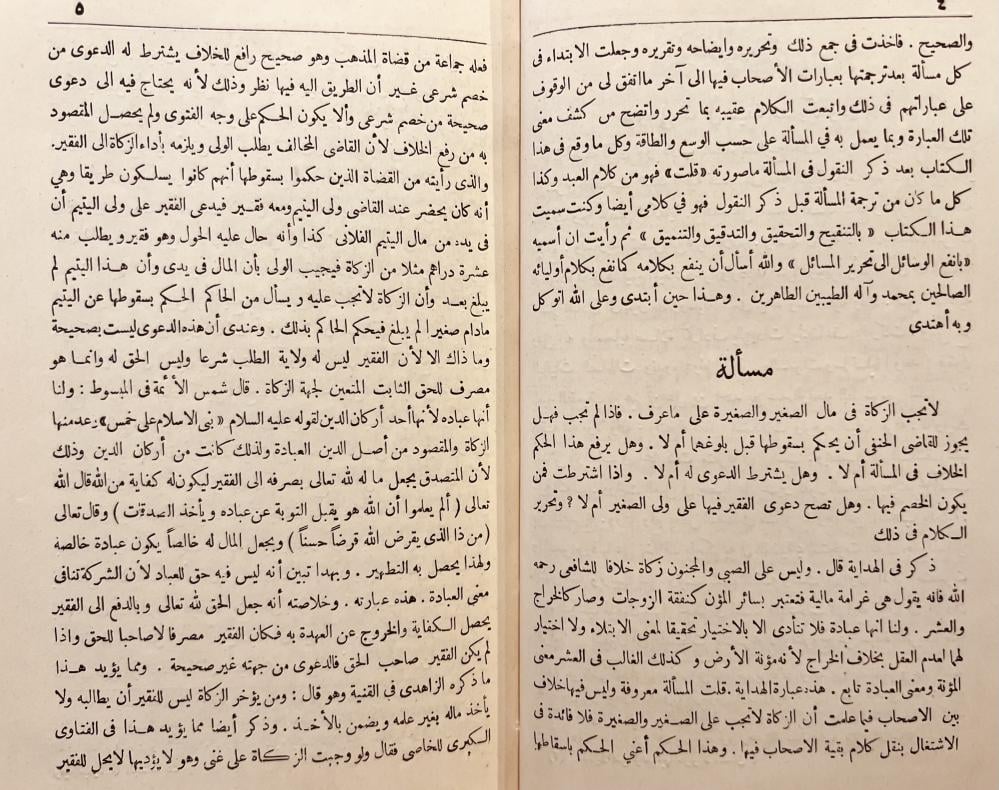 ٤
والصحيح . فاخذت فى جمع ذلك وتحريره وايضاحه وتقريره وجعلت الابتداء فى
كل مسألة بعد ترجمتها بعبارات الأصحاب فيها الى آخر مااتفق لى من الوقوف
على عباراتهم فى ذلك واتبعت الكلام عقيبه بما تحرر واتضح من كشف معنى
تلك العبارة وبما يعمل به في المسألة على حسب الوسع والطاقة وكل ماوقع فى هذا
الكتاب بعد ذكر النقول فى المسألة ماصورته «قلت» فهو من كلام العبد وكذا
كل ما كان من ترجمة المسألة قبل ذكر النقول فهو في كلامى أيضا وكنت سميت
هذا الكتاب « بالتنقيح والتحقيق والتدقيق والتنميق » ثم رأيت ان أسميه
«بانفع الوسائل الى تحرير المسائل » والله أسأل أن ينفع بكلامه كما نفع بكلام أوليائه
الصالحين بمحمد وآله الطيبين الطاهرين . وهذا حين أبتدى وعلى الله اتوكل
وبه أهتدى
مسألة
لاتجب الزكاة فى مال الصغير والصغيرة على ماعرف . فاذا لم تجب فهل
يجوز للقاضى الحنفى أن يحكم بسقوطها قبل بلوغهما أم لا . وهل يرفع هذا الحكم
الخلاف فى المسألة أم لا . وهل يشترط الدعوى له أم لا . واذا اشترطت فمن
يكون الخصم فيها . وهل تصح دعوى الفقير فيها على ولى الصغير أم لا ? وتحرير
الكلام فى ذلك
ذكر فى الهداية قال . وليس على الصبى والمجنون زكاة خلافا للشافعى رحمه
الله فانه يقول هى غرامة مالية فتعتبر بسائر المؤن كنفقة الزوجات وصار كالخراج
والعشر . ولنا انها عبادة فلا تتأدى الا بالاختيار تحقيقا لمعنى الابتلاء ولا اختيار
لهما لعدم العقل بخلاف الخراج لأنه مؤنة الأرض وكذلك الغالب فى العشر معنى
المؤنة ومعنى العبادة تابع . هذه عبارة الهداية . قلت المسألة معروفة وليس فيها خلاف
بين الاصحاب فيما علمت أن الزكاة لاتجب على الصغير والصغيرة فلا فائدة فى
الاشتغال بنقل كلام بقية الاصحاب فيها . وهذا الحكم أعني الحكم باسقاطها
٥
فعله جماعة من قضاة المذهب وهو صحيح رافع للخلاف يشترط له الدعوى من
خصم شرعى غير أن الطريق اليه فيها نظر وذلك لأنه يحتاج فيه الى دعوى
صحيحة من خصم شرعى وألا يكون الحكم على وجه الفتوى ولم يحصل المقصود
به من رفع الخلاف لأن القاضى المخالف يطلب الولى ويلزمه بأداء الزكاة الى الفقير.
والذى رأيته من القضاة الذين حكموا بسقوطها أنهم كانوا يسلكون طريقا وهي
أنه كان يحضر عند القاضى ولى اليتيم ومعه فقير فيدعى الفقير على ولى اليتيم أن
فى يده من مال اليتيم الفلانى كذا وأنه حال عليه الحول وهو فقير ويطلب منه
عشرة دراهم مثلا من الزكاة فيجيب الولى بأن المال فى يدى وأن هذا اليتيم لم
يبلغ بعد وأن الزكاة لاتجب عليه ويسأل من الحاكم الحكم بسقوطها عن اليتيم
مادام صغيرا لم يبلغ فيحكم الحاكم بذلك . وعندى أن هذه الدعوى ليست بصحيحة
وما ذاك الا لأن الفقير ليس له ولاية الطلب شرعا وليس الحق له وانما هو
مصرف للحق الثابت المتعين لجهة الزكاة . قال شمس الأئمة فى المبسوط : ولنا
أنها عباده لأنها أحد أركان الدين لقوله عليه السلام « بنى الاسلام على خمس» وعد منها
الزكاة والمقصود من أصل الدين العبادة ولذلك كانت من أركان الدين وذلك
لأن المتصدق يجعل ما له لله تعالى بصرفه الى الفقير ليكون له كفاية من الله قال الله
تعالى ( ألم يعلموا أن الله هو يقبل التوبة عن عباده ويأخذ الصدقات ) وقال تعالى
(من ذا الذى يقرض الله قرضاً حسناً ) ويجعل المال له خالصاً يكون عبادة خالصه
ولهذا يحصل به التطهير . وبهذا تبين أنه ليس فيه حق للعباد لأن الشركة تنافى
معنى العبادة . هذه عبارته . وخلاصته أنه جعل الحق لله تعالى وبالدفع الى الفقير
يحصل الكفاية والخروج عن العهدة به فكان الفقير مصرفا لاصاحبا للحق واذا
لم يكن الفقير صاحب الحق فالدعوى من جهته غير صحيحة . ومما يؤيد هذا
ما ذكره الزاهدى فى القنية وهو قال : ومن يؤخر الزكاة ليس للفقير أن يطالبه ولا
يأخذ ماله بغير علمه ويضمن بالأخذ . وذكر أيضا مما يؤيد هذا فى الفتاوى
الكبرى للخاصى فقال ولو وجبت الزكاة على غنى وهو لايؤديها لايحل للفقير